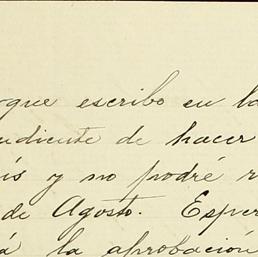 que escribo en la
udiente de hacer
is y no podré r
de Agosto. Esper
á la aprobación